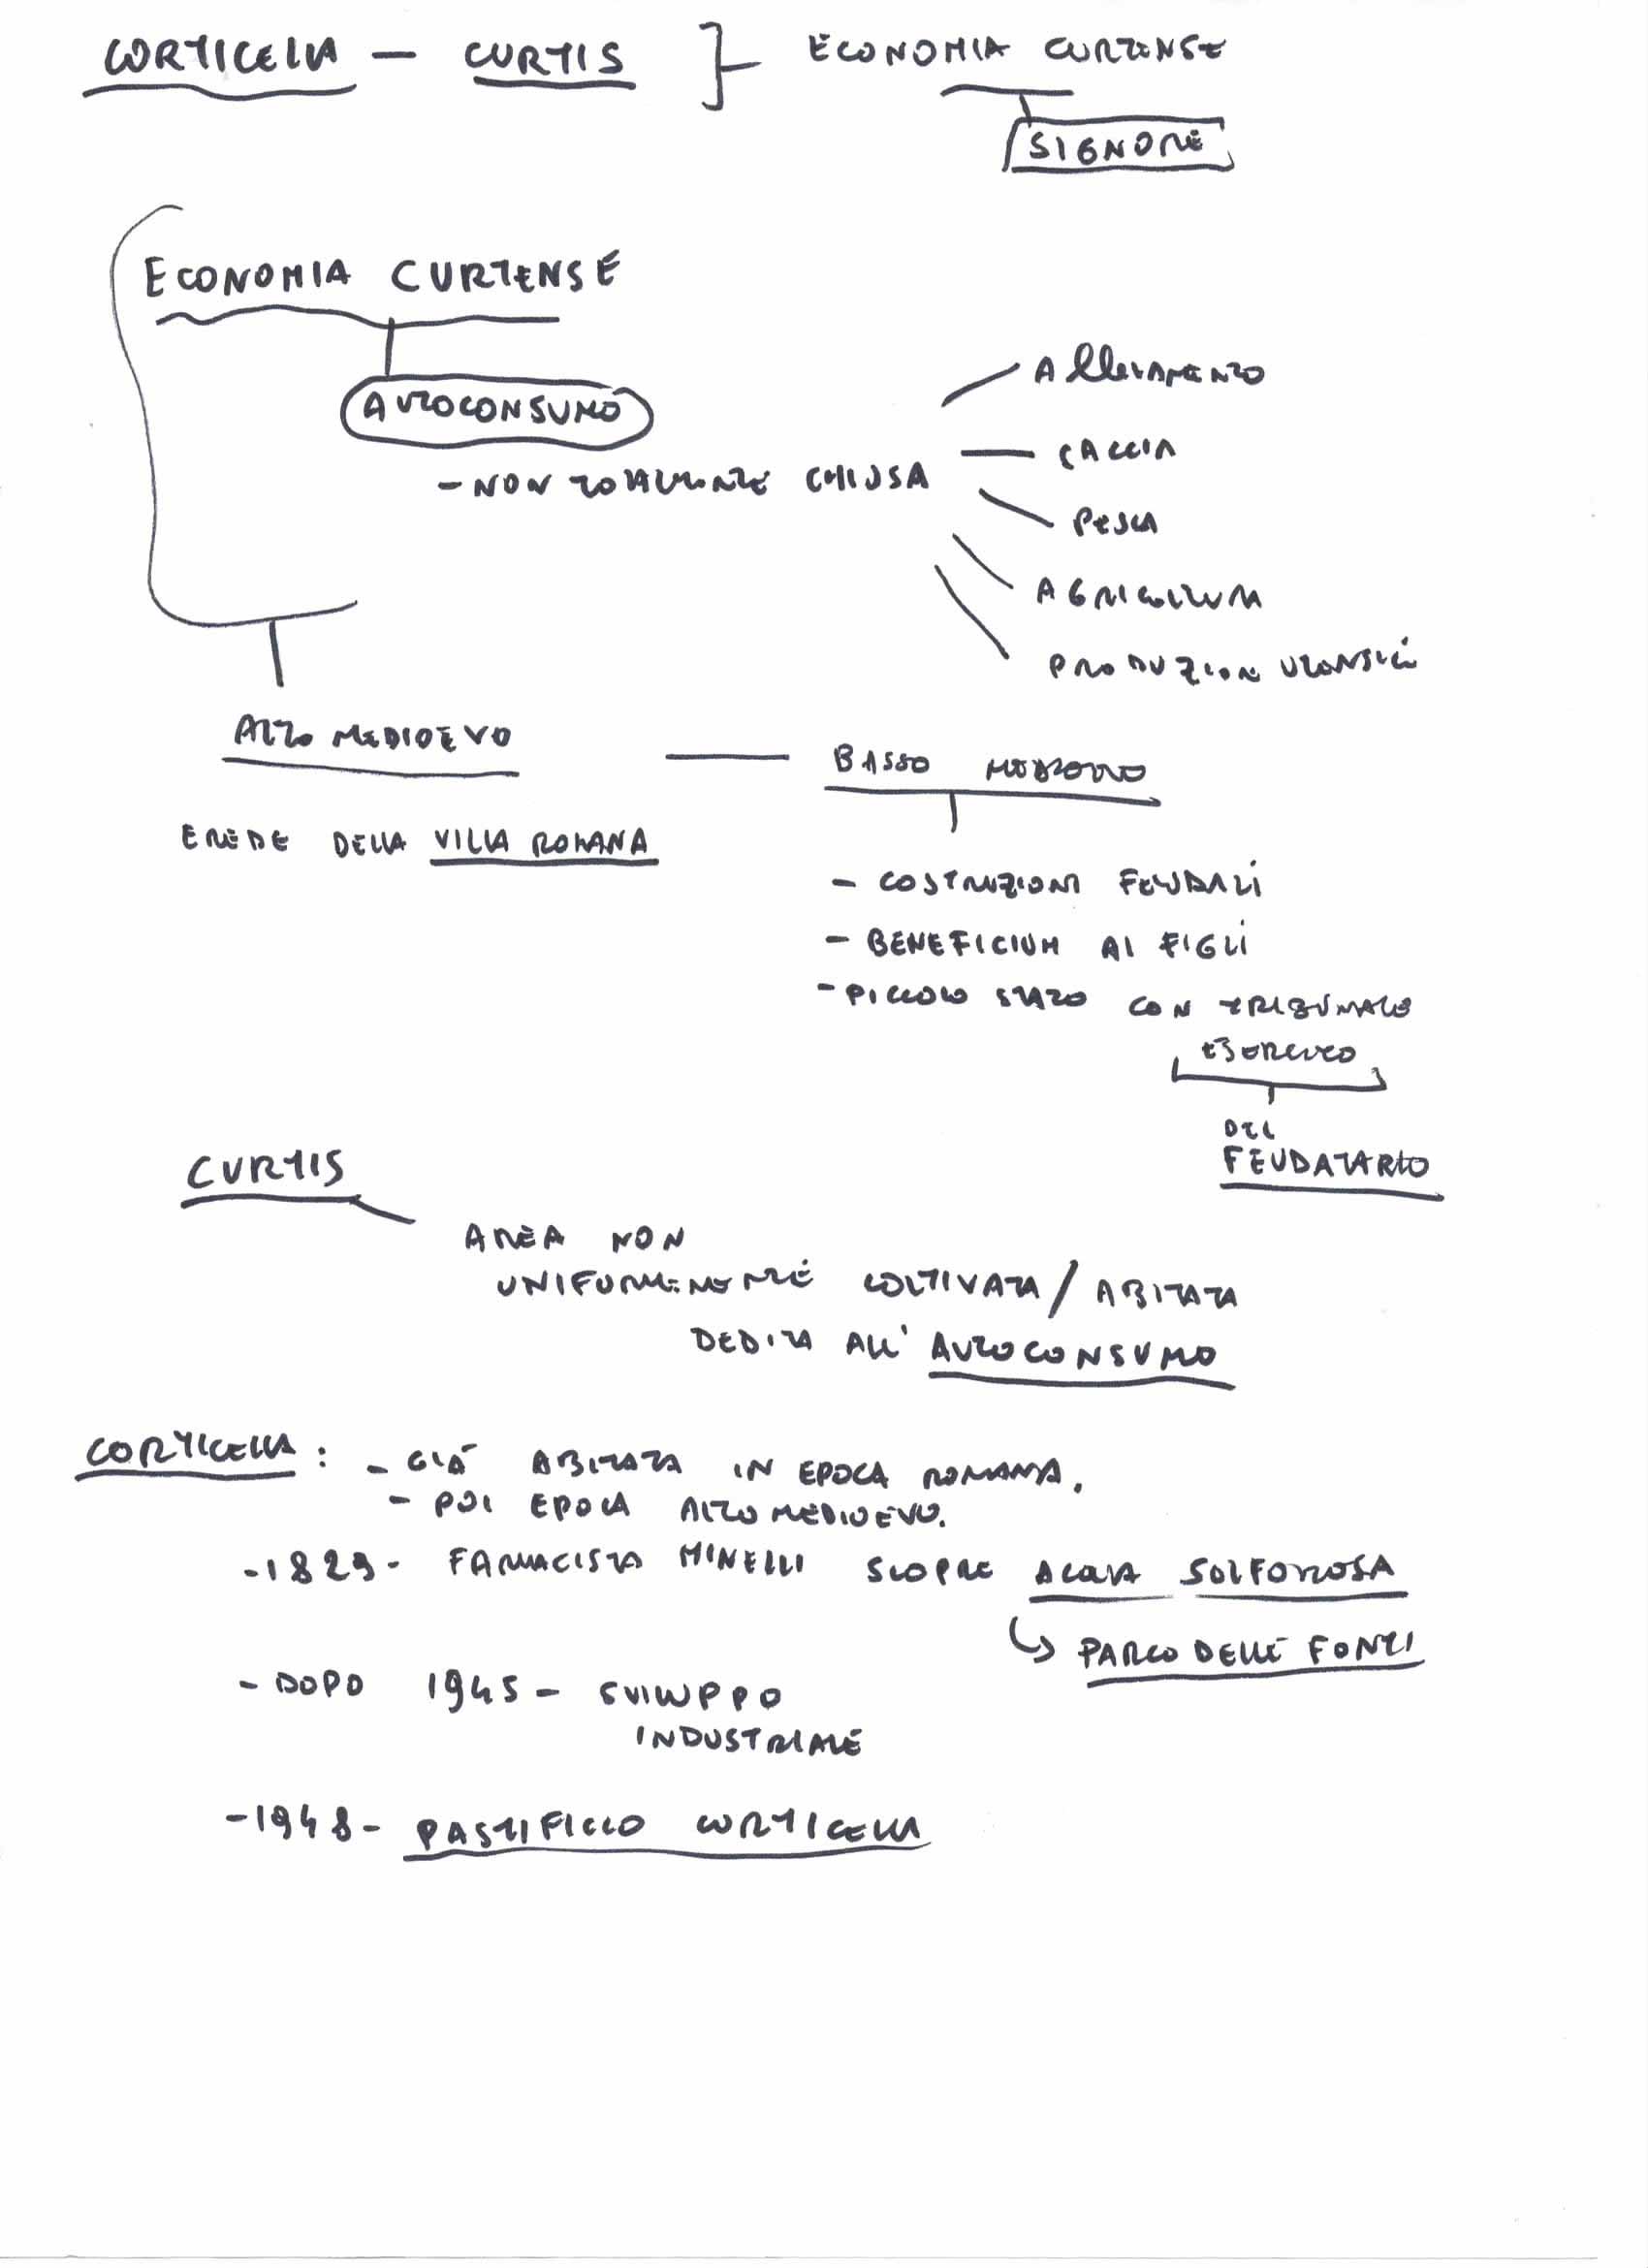 CORTICELLA — CURTIS } ECONOMIA CURTENSE
SIGNORE
ECONOMIA CURTENSE
AUTOCONSUMO
- NON TOTALMENTE CHIUSA
ALLEVAMENTO
CACCIA
PESCA
AGRICOLTURA
PRODUZION UTENSILI
ALTO MEDIOEVO — BASSO MEDIOEVO
EREDE DELLA VILLA ROMANA
- COSTRUZIONI FEUDALI
- BENEFICIUM AI FIGLI
- PICCOLO STATO CON TRIBUNALE
ESERCITO
DEL
FEUDATARIO
CURTIS
AREA NON
UNIFORMEMENTE COLTIVATA / ABITATA
DEDITA ALL' AUTOCONSUMO
CORTICELLA : - GIÀ ABITATA IN EPOCA ROMANA.
- POI EPOCA ALTO MEDIOEVO.
- 1829 - FARMACISTA MINELLI SCOPRE ACQUA SOLFOROSA
↳ PARCO DELLE FONTI
- DOPO 1945 - SVILUPPO
INDUSTRIALE
- 1948 - PASTIFICIO CORTICELLA